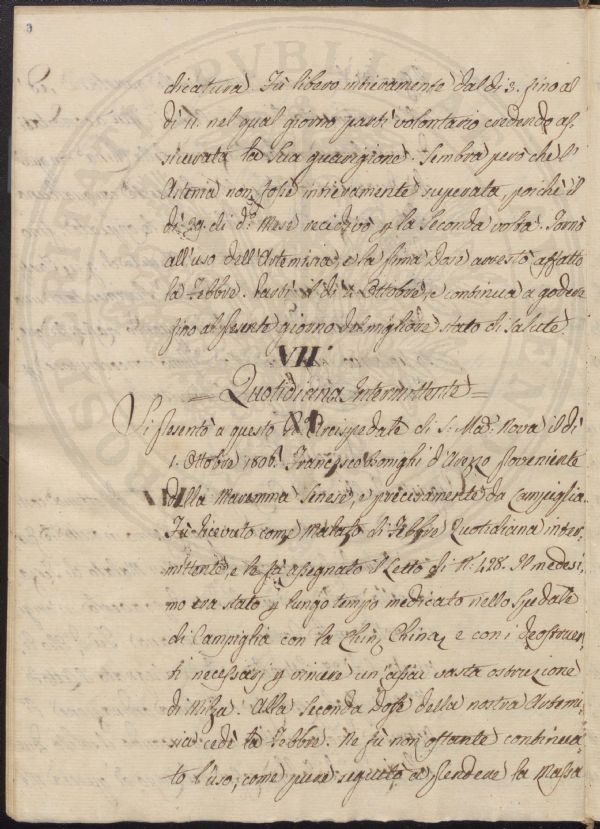 dicatura. Fù libero intieramente dal dì 3. fino al
dì 11. nel qual giorno partì volontario credendo as,
sicurata la sua guarigione. Sembra però che l'
Astenia non fosse intieramente superata, poichè il
dì 29. di d.º Mese recidivò p la seconda volta. Tornò
all'uso dell'Artemisia, e la prima dose arrestò affatto
la Febbre. Partì il dì 2. Ottobre, e continua a godere
fino al presente giorno del migliore stato di salute.
VII
= Quotidiana Intermittente =
Si presentò a questo R. Arcispedale di S. Mad. Nova il dì
1. Ottobre 1806. Francesco Borghi d'Arezzo proveniente
dalla Maremma Senese, e precisamente da Campiglia.
Fù ricevuto come Malato di Febbre Quotidiana inter,
mittente, e le fù assegnato il Letto di N. 428. Il medesi,
mo era stato p lungo tempo medicato nello Spedale
di Campiglia con la Chin China, e con i Deostruen,
ti necessarj p vincere un'assai vasta ostruzione
di Milza. Alla seconda Dose della nostra Artemi,
sia cedè la Febbre. Ne fù non ostante continua,
to l'uso, come pure seguitò a prendere la Massa